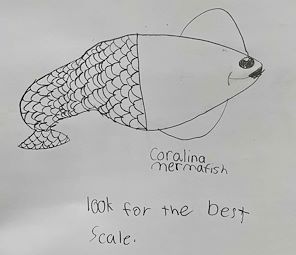 coralina
mermafish
look for the best
scale.